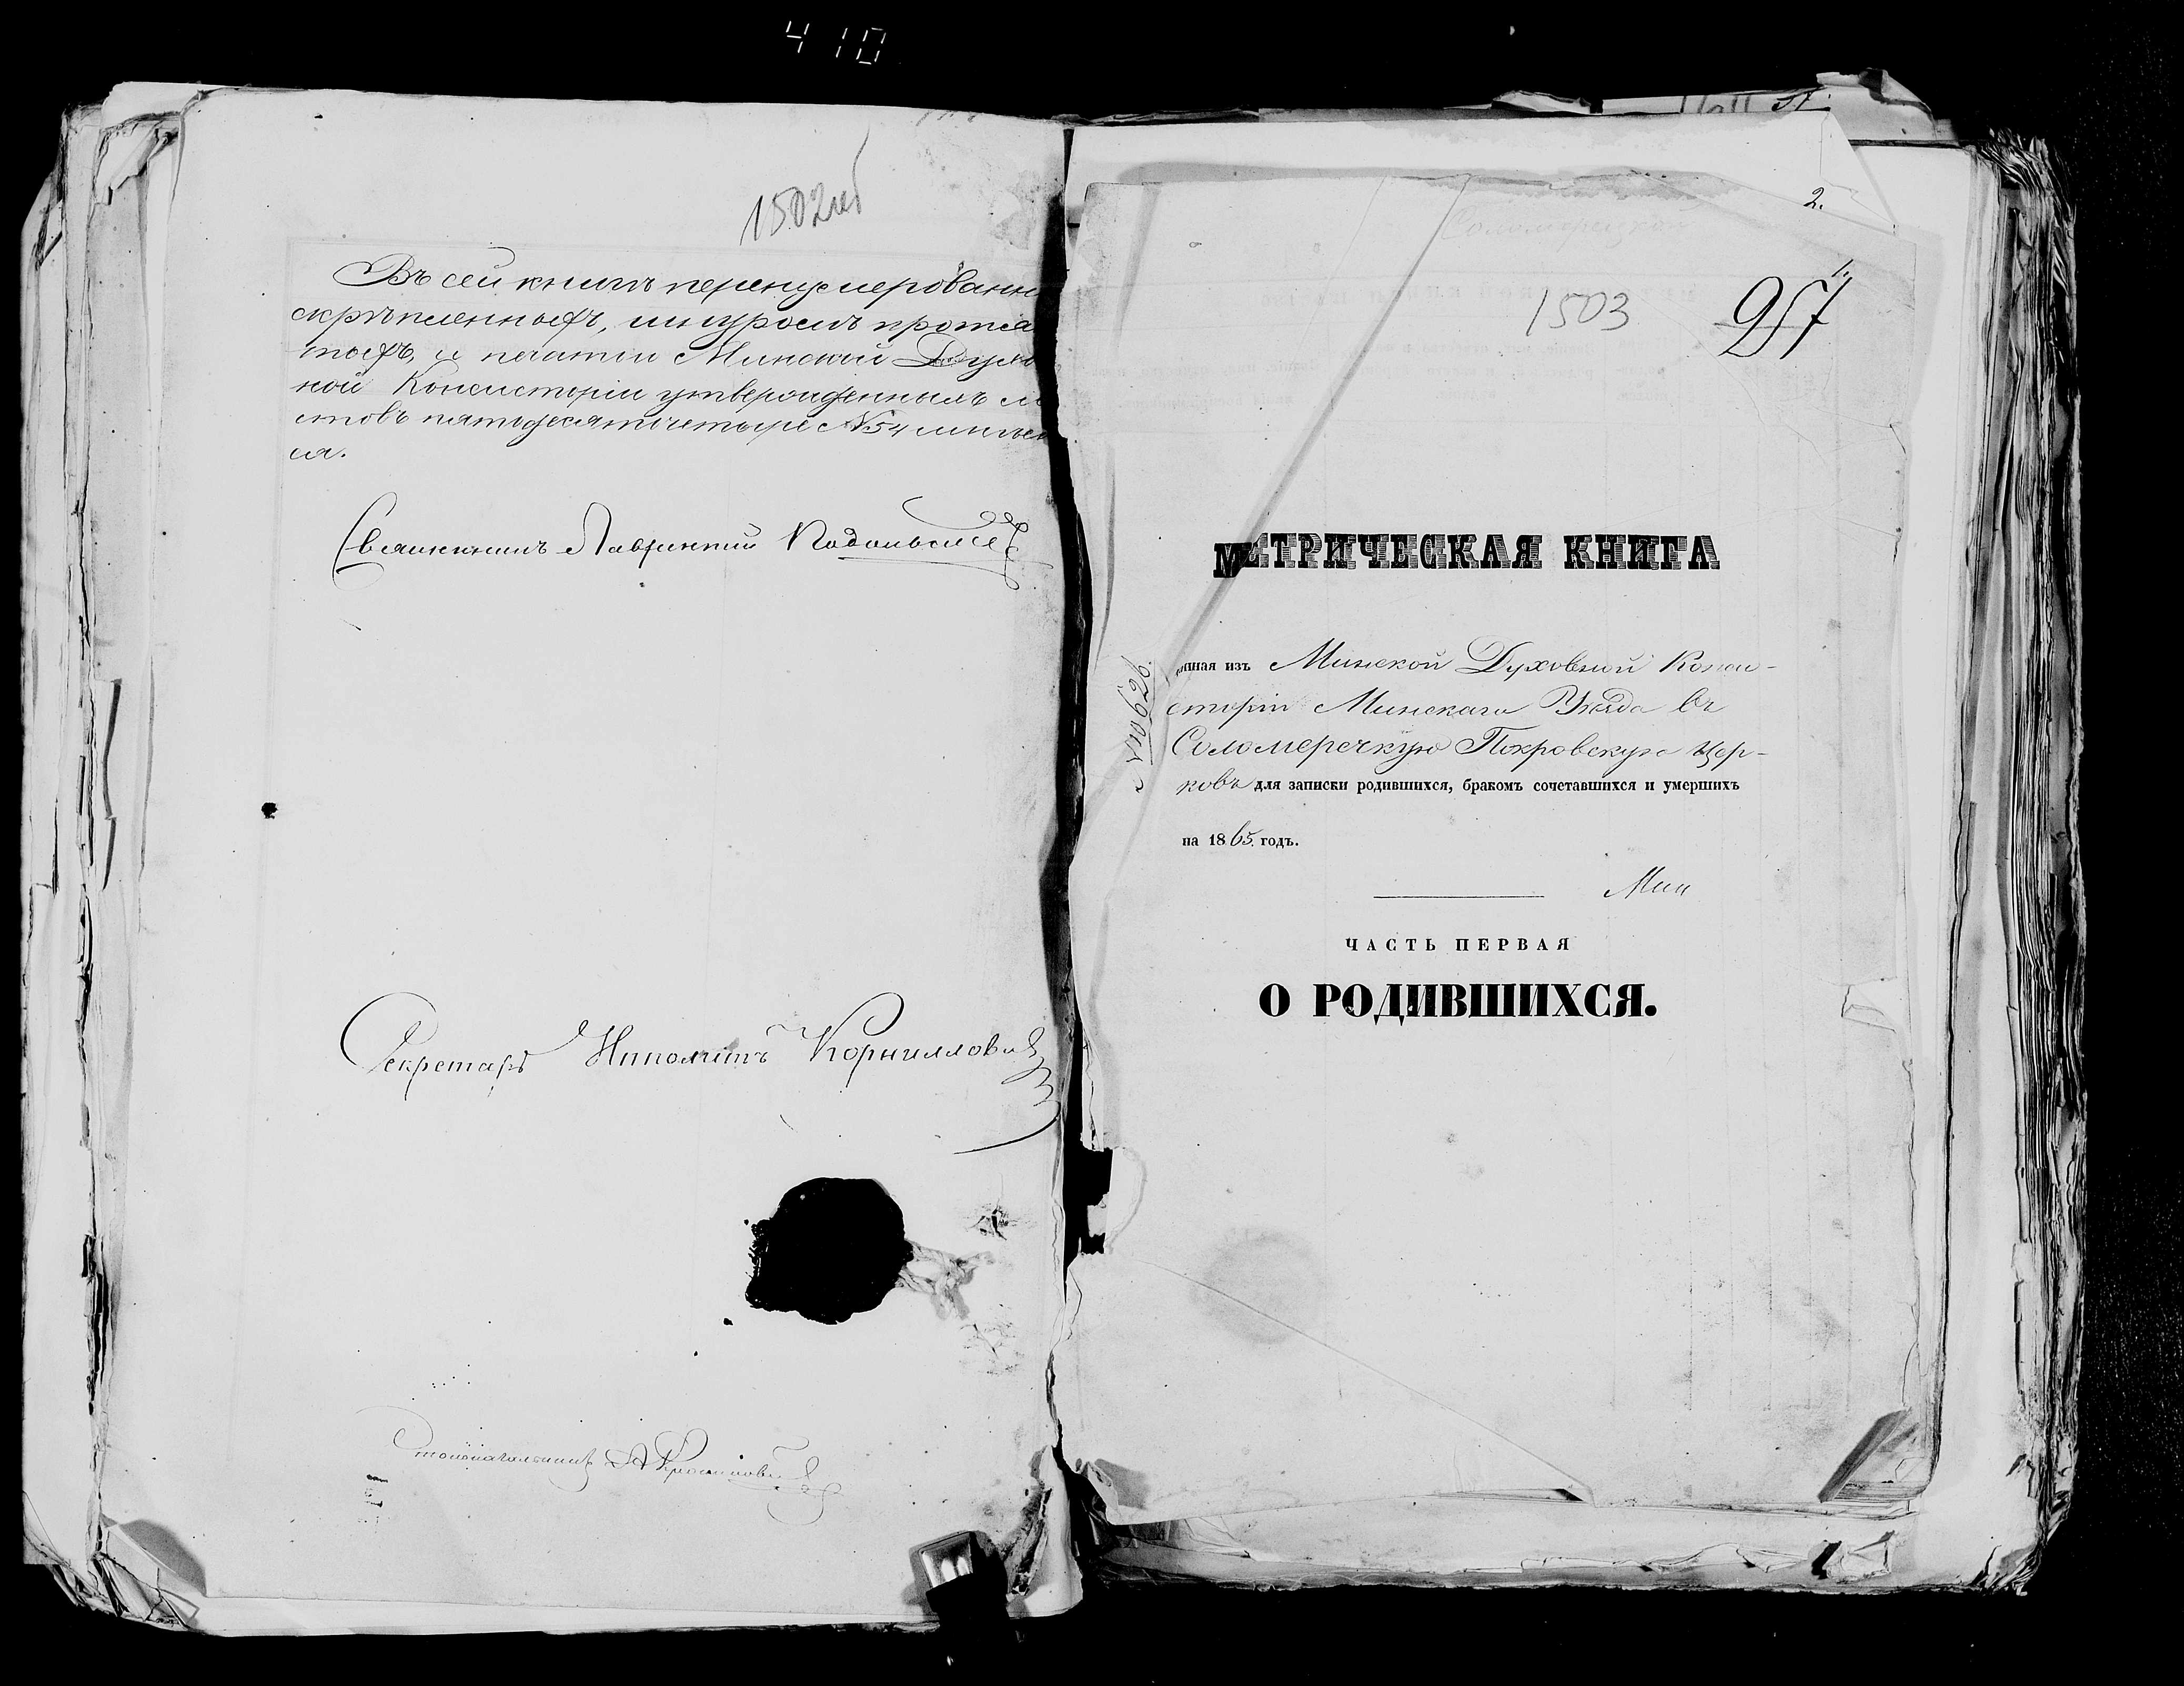 410
1502об
Въ сей книгѣ перенумерованн
скрѣпленныхъ, шнуромъ протя
тыхъ, и печатью Минской Духов
ной Консисторіи утвержденныхъ ли
стовъ пятьдесятъ четыре №54 имѣет
ся.
Священникъ Лаврентій Подольскій
Секретарь Ипполитъ Корнилович
Столоначальникъ А
2.
1.
1503
257
МЕТРИЧЕСКАЯ КНИГА
нная изъ Минской Духовной Конси-
сторіи Минскаго Уѣзда въ
Соломеречкую Покровскую Цер-
ковь для записки родившихся, бракомъ сочетавшихся и умершихъ
на 1865 годъ.
№10626.
Мин
ЧАСТЬ ПЕРВАЯ
О РОДИВШИХСЯ.